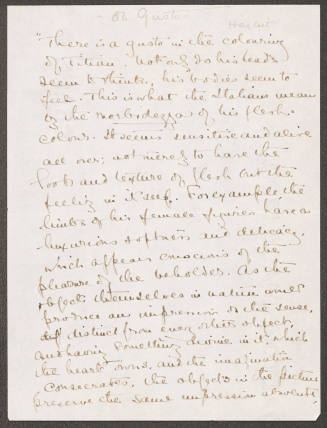 On Gusto
Hazlitt
"There is a gusto in the colouring
of Titian. Not only do his heads
seem to think, his bodies seem to
feel. This is what the Italians mean
by the morbidezza of his flesh
colour. It seems sensitive and alive
all over; not merely to have the
look and texture of flesh but the
feeling in itself. For example, the
limbs of his female figures have a
luxurious softness and delicacy,
which appears conscious of the
pleasure of the beholder. As the
objects themselves in nature would
produce an impression on the sense,
distinct from every other object,
and having something divine in it, which
the heart owns, and the imagination
consecrates, the objects in the picture
preserve the same impression absolute,